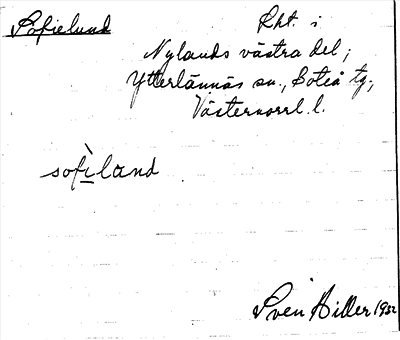 Sofielund Rht. i
Nylands västra del;
Ytterlännäs sn., Boteå tg.,
Västernorrl. l.
sofìland
Sven Hiller 1932